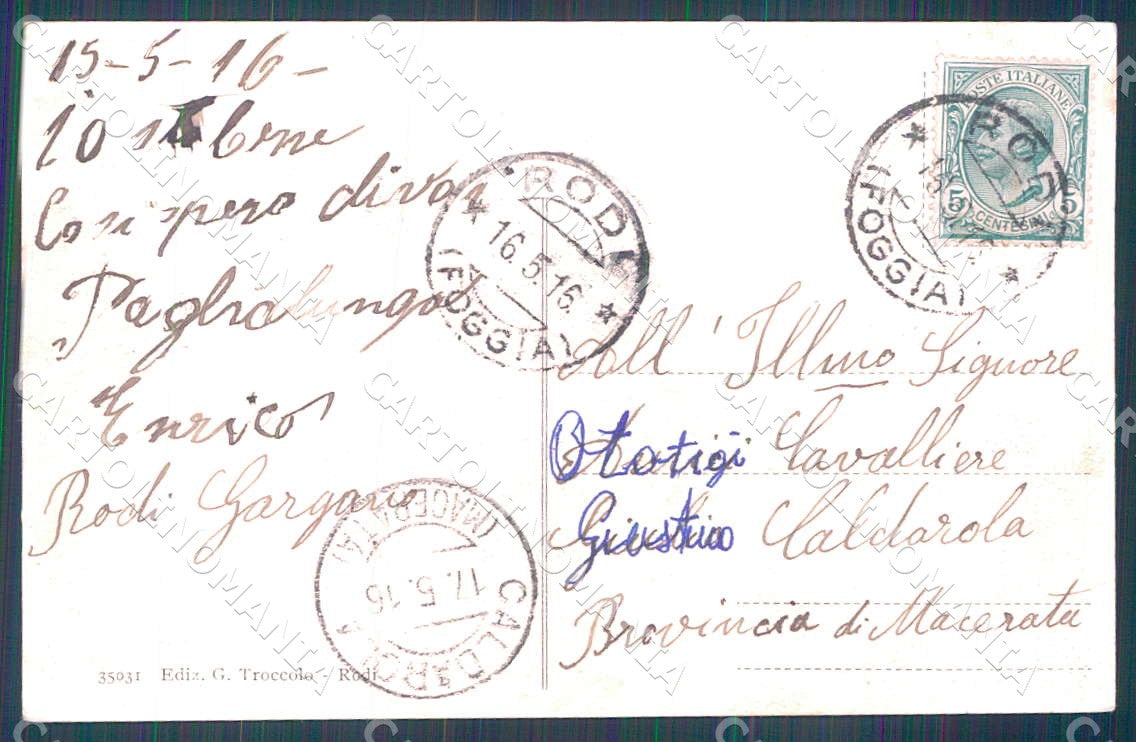 15-5-16-
Io st bene
Cosi spero di voi
Paglialunga
Enrico
Rodi Gargano
35031 Ediz. G. Troccolo - Rodi
POSTE ITALIANE
5 CENTESIMI 5
RODI
(FOGGIA)
RODI
16.5.16
(FOGGIA)
All' Illmo Signore
Cavalliere
Giustino Caldarola
Provincia di Macerata
CALDAROLA
17.5.16
(MACERATA)
CARTOLMANIA